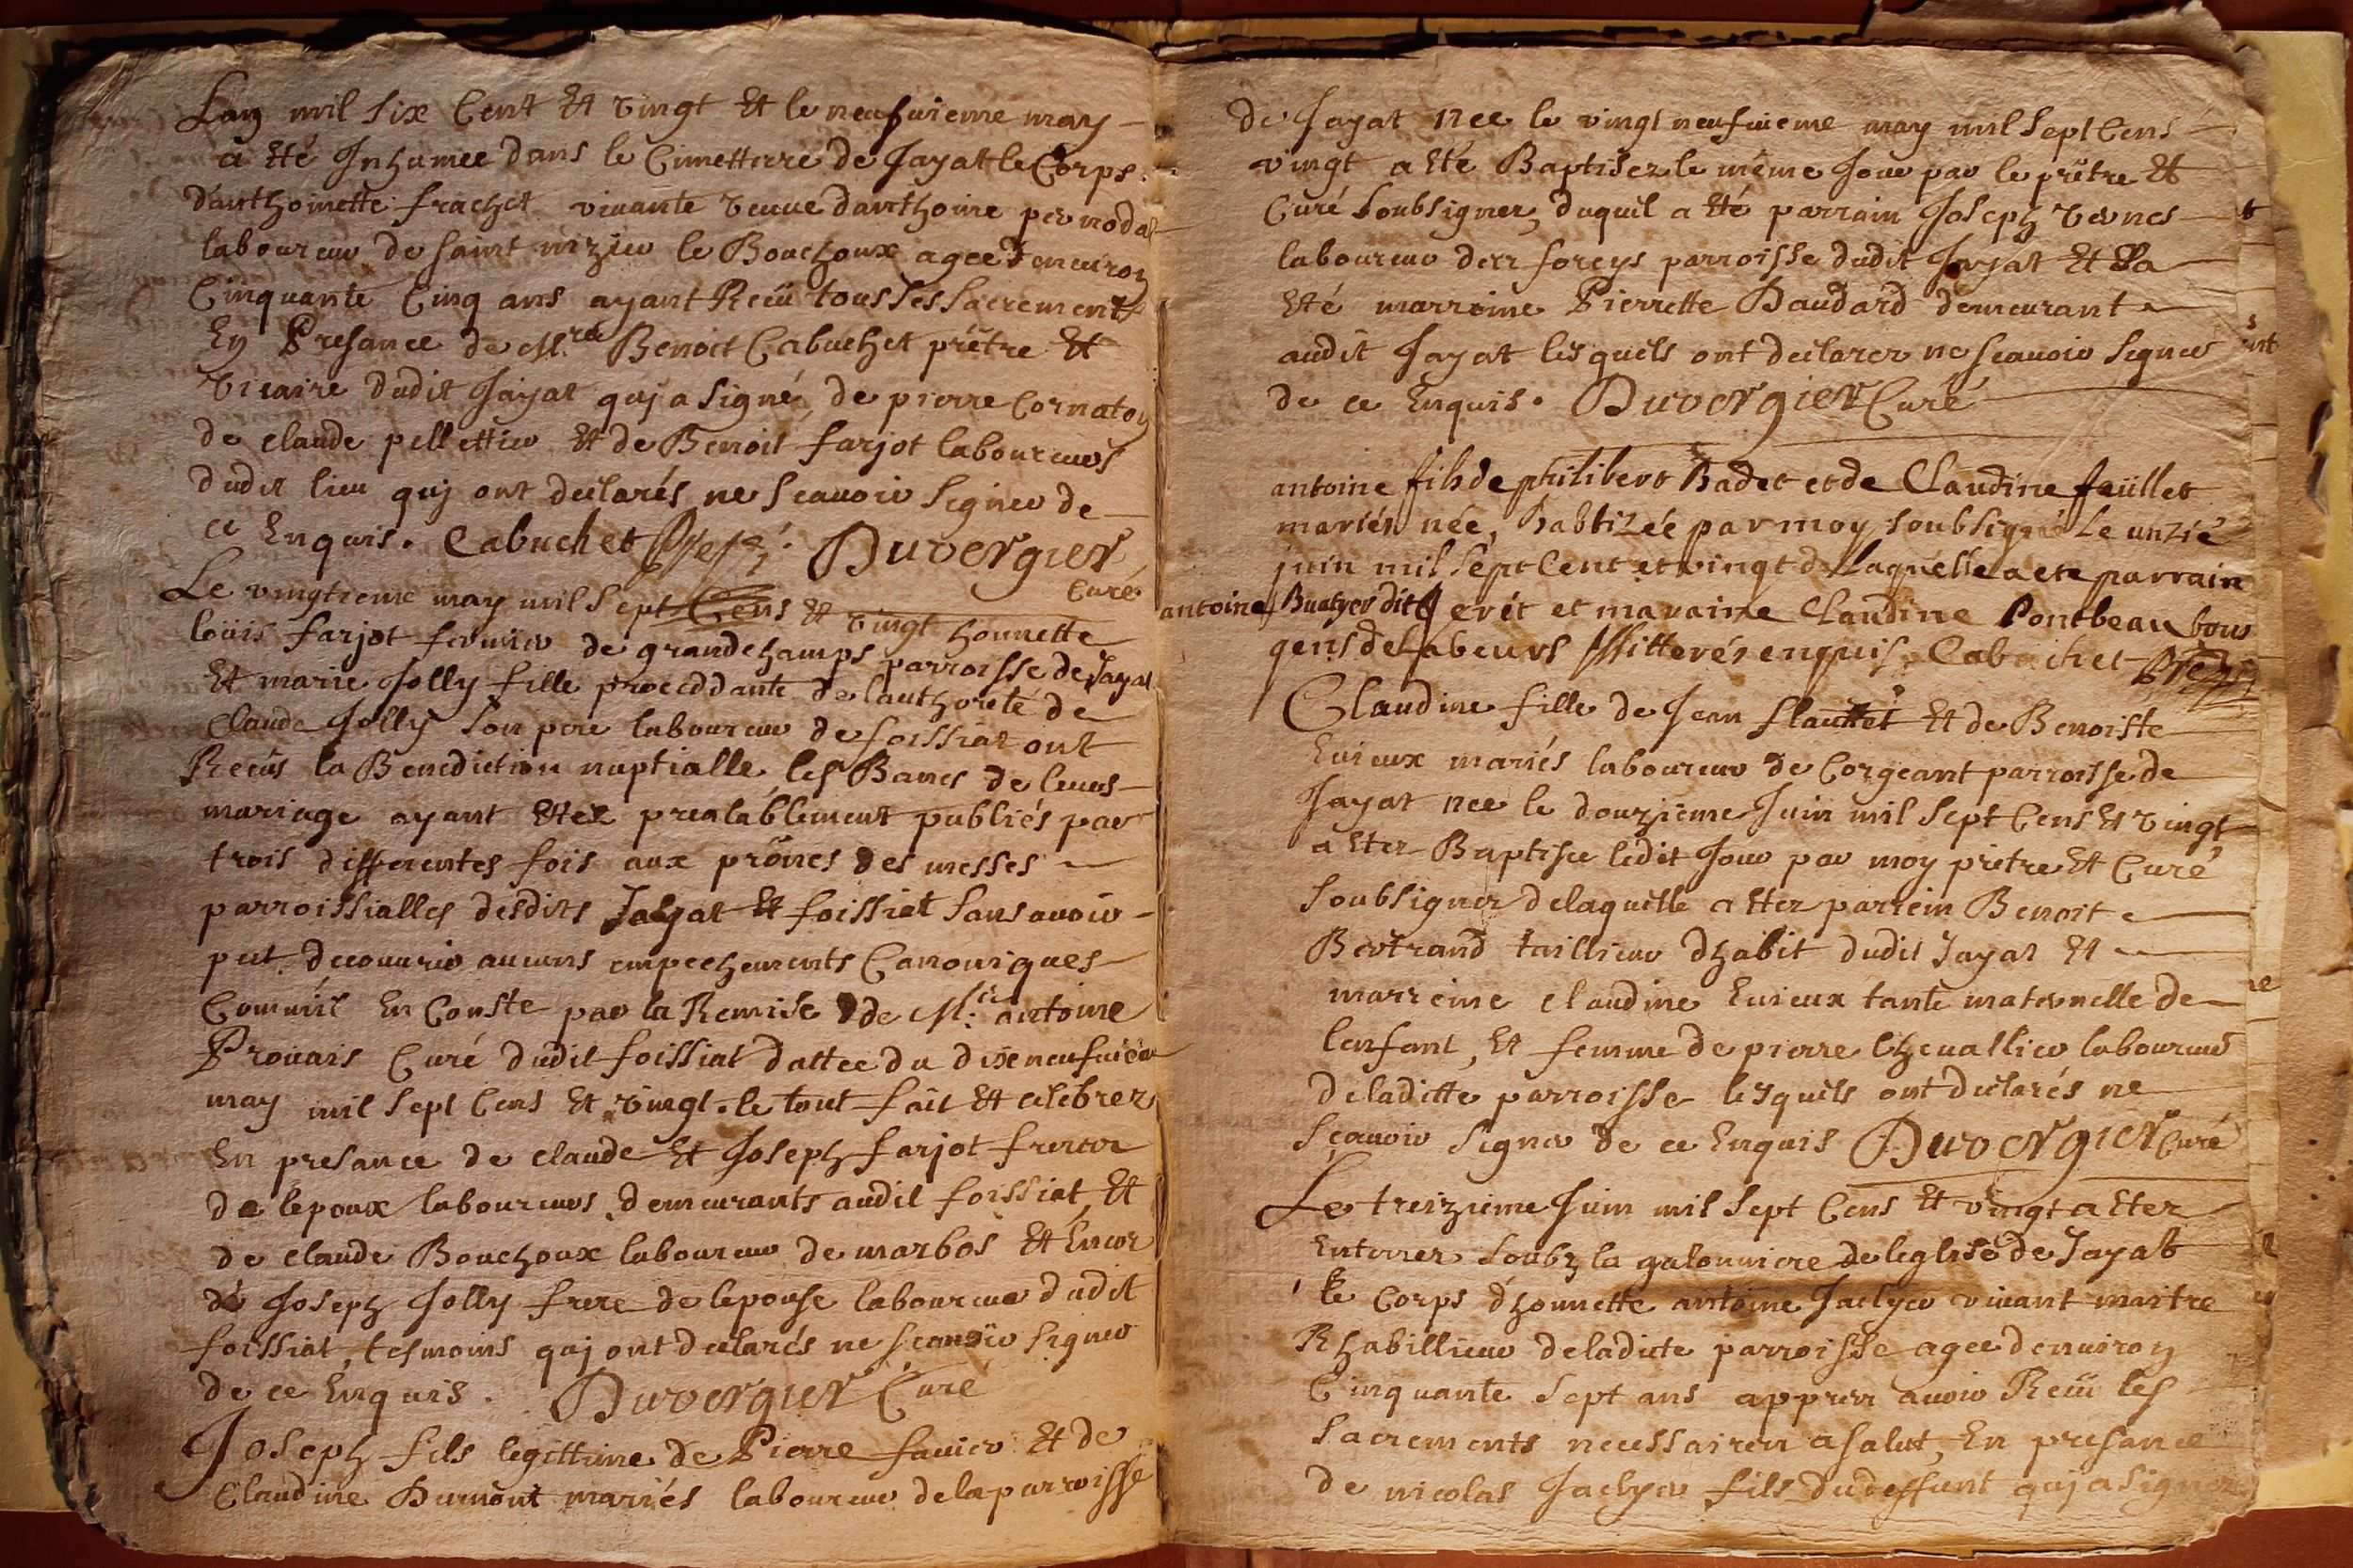 Lan mil six Cent Et vingt Et le neufuieme may
a Eté Inhumee dans le Cimetterre de Jayat le Corps
danthoinette frachet vivante veuve danthoine pernodat
laboureur de saint nizier le Bouchoux agee denuiron
Cinquante Cinq ans ayant Reçu tous les sacrements
En Presance de Mre Benoit Cabuchet prêtre Et
Vicaire dudit Jayat quj a signé, de pierre Cornaton
de claude pellettier Et de Benoit farjot laboureurs
dudit lieu quj ont declarés ne scauoir signer de
ce Enquis. Cabuchet Duvergier
Curé
Le vingtieme may mil sept Cens Et vingt honnette
loüis farjot fermier de grandchamps parroisse de Jayat
Et marie Jolly fille proceddante de lauthorité de
Claude Jolly son pere laboureur de foissiat ont
Reçus la Benediction nuptialle les Bancs de leurs
mariage ayant Etez prealablement publiés par
trois differentes fois aux prônes des messes
parroissialles desdits Jayat Et foissiat sans auoir
put decouurir aucuns empechements Canoniques
Comm'il En Conste par la Remise de Mre antoine
Prouais Curé dudit foissiat dattee du dixneufuieme
may mil sept Cens Et vingt. le tout fait Et celebrer
En presance de claude Et Joseph farjot freres
de lepoux laboureurs demeurants audit foissiat, Et
de claude Bouchoux laboureur de marbos Et Encor
de Joseph Jolly frere de lepouse laboureur dudit
foissiat, tesmoins quj ont declarés ne scauoir signer
de ce Enquis. Duvergier Curé
Joseph fils legittime de Pierre fauier Et de
Claudine Dumont mariés laboureur de la parroisse
de Jayat nee le vingt neufuieme may mil sept Cens
vingt a été Baptisez le même Jour par le prêtre Et
Curé soubsigner, duquil a Eté parrain Joseph vernes
laboureur des foreys parroisse dudit Jayat Et sa
Eté marreine Pierrette Baudard demeurant
audit Jayat lesquels ont declarer ne scauoir signer
de ce Enquis. Duvergier Curé
antoine fils de philibert Badet et de Claudine feüillet
mariés née, babtizée par moy soubsigné le unzie
juin mil sept Cent et vingt de Laquelle a ete parrain
antoine Buatyer dit et maraine Claudine Pontbeau tous
gens de Labeurs Illitterés enquis. Cabuchet
Claudine fille de Jean flauttet Et de Benoiste
Euieux mariés laboureur de Corgeant parroisse de
Jayat nee le douzieme Juin mil sept Cens Et vingt
a Eter Baptisee ledit Jour par moy prêtre Et Curé
soubsigner delaquelle a Eter parrein Benoit
Bertrand taillieur dhabit dudit Jayat Et
marreine claudine Euieux tante maternelle de
lenfant, Et femme de pierre Cheuallier laboureur
deladitte parroisse lesquels ont declarés ne
sçauoir signer de ce Enquis Duvergier Curé
Le treizieme Juin mil sept Cens Et vingt a Eter
Enterrer soubz la galonniere de leglise de Jayat
le Corps dhonnette antoine Jaclyer viuant maitre
Rhabillieur deladitte parroisse agee denuiron
Cinquante sept ans appres auoir Reçu les
sacrements necessaires a salut, En presance
de nicolas Jaclyer fils du deffunt quj a signer